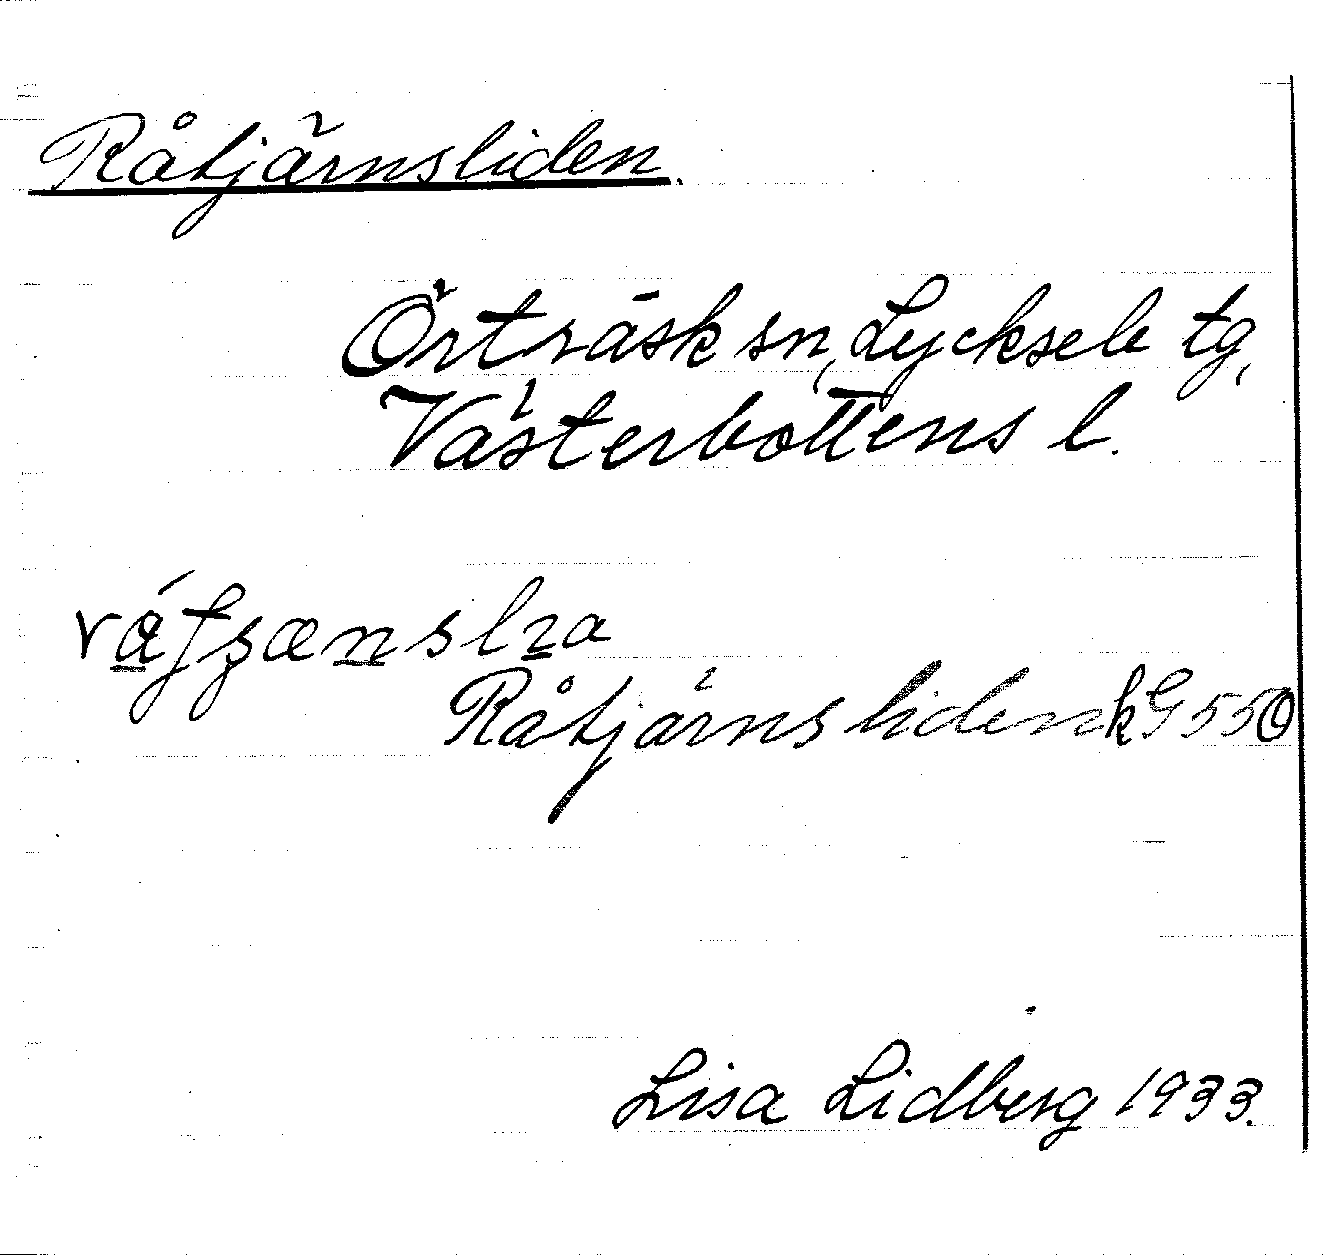 Råtjärnsliden.
Örträsk sn, Lycksele tg,
Västerbottens l.
Råtjärnsliden k G 550
Lisa Lidberg 1933.